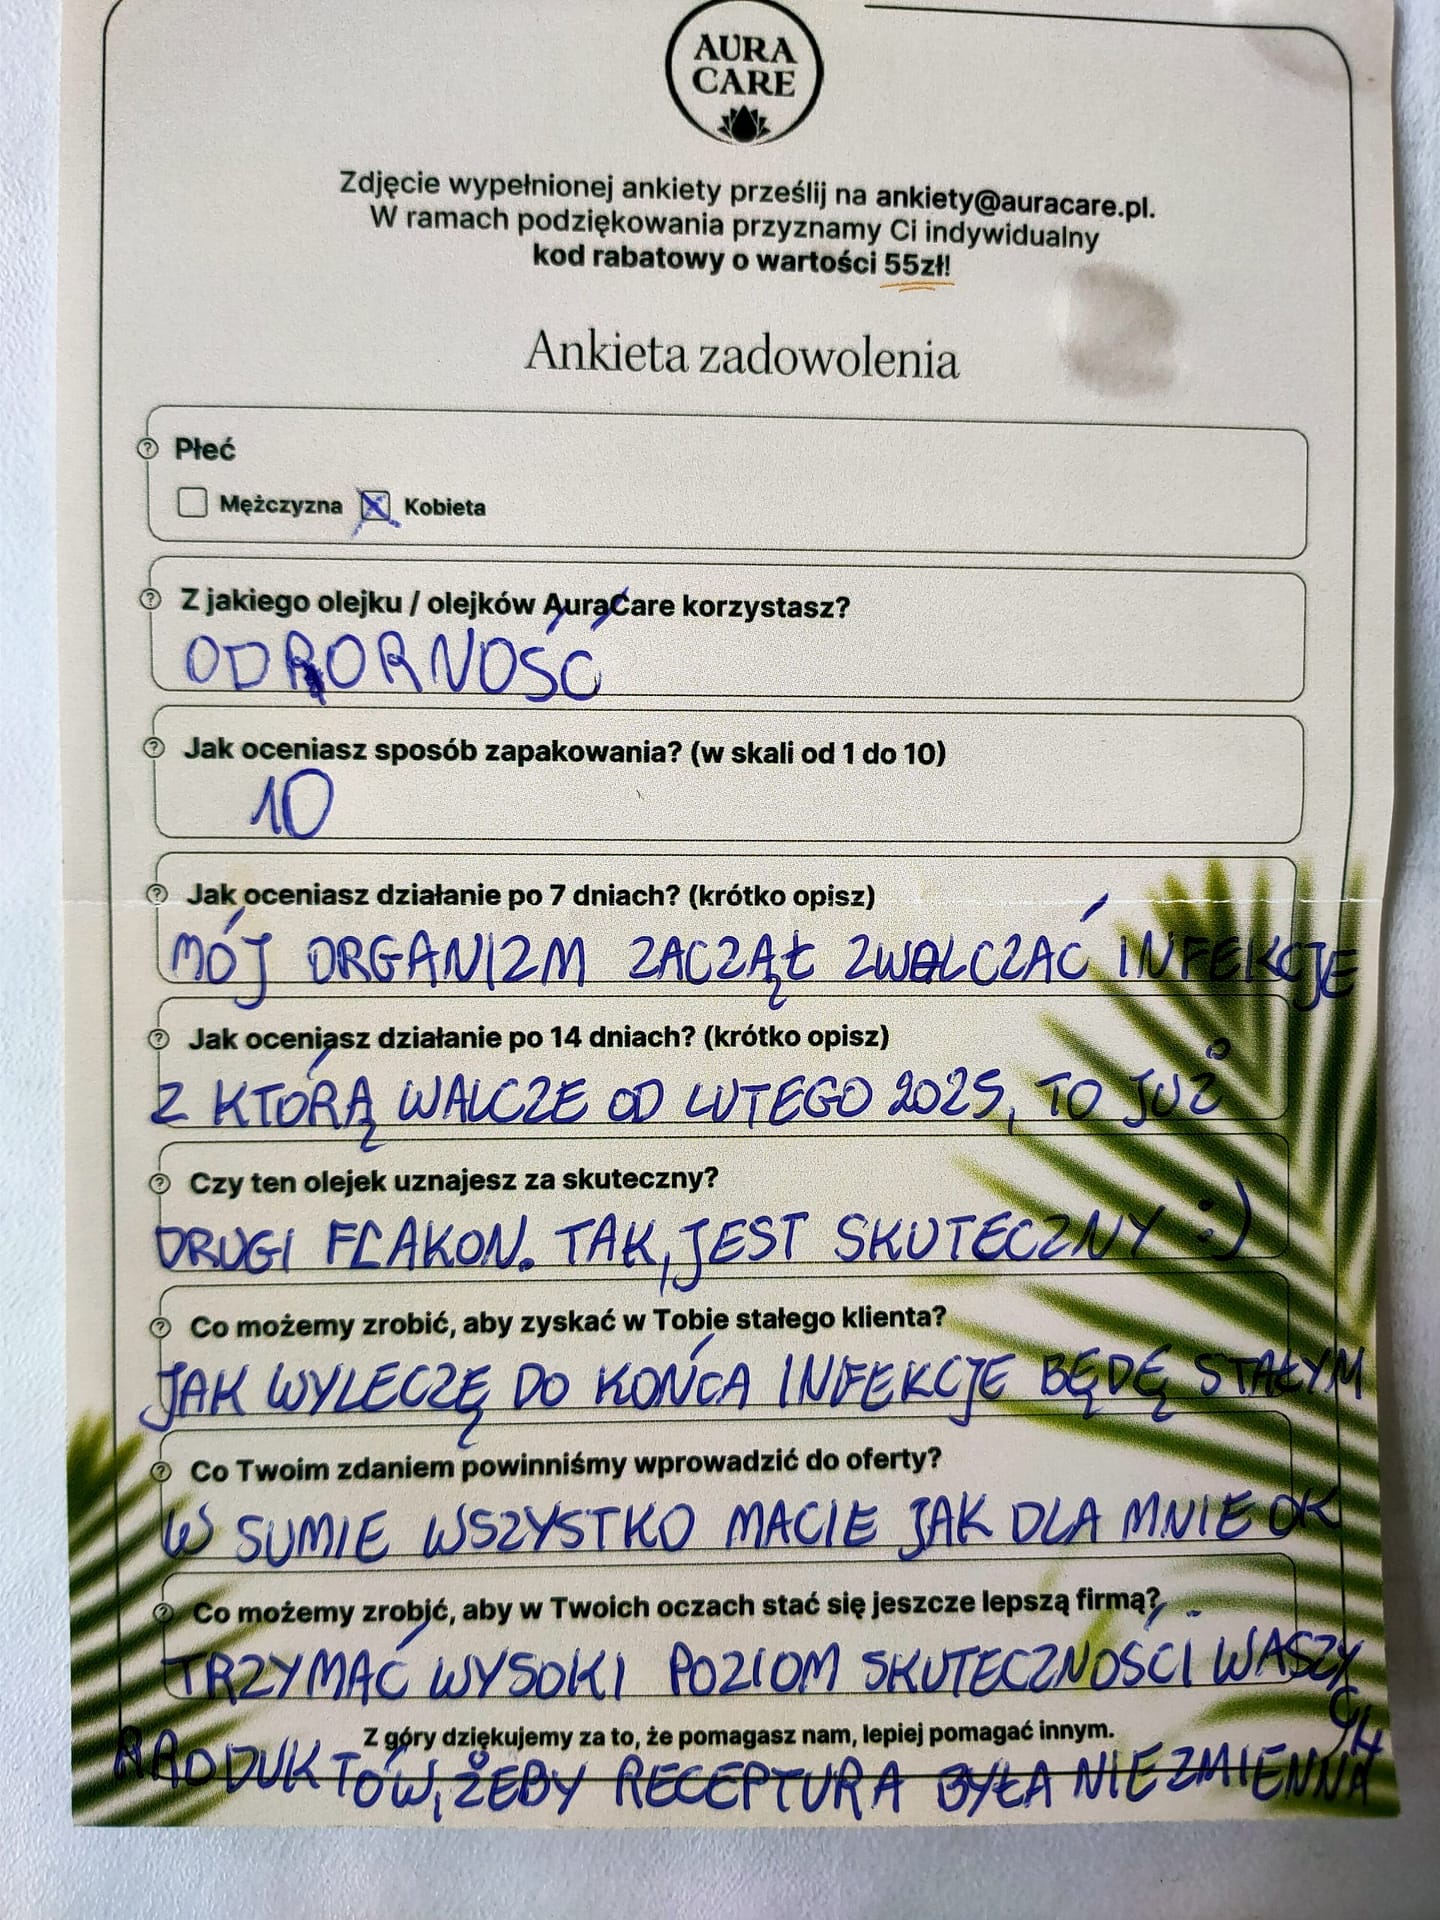 AURA
CARE
Zdjęcie wypełnionej ankiety prześlij na ankiety@auracare.pl.
W ramach podziękowania przyznamy Ci indywidualny
kod rabatowy o wartości 55zł!
Ankieta zadowolenia
Płeć
Mężczyzna Kobieta
Z jakiego olejku / olejków AuraCare korzystasz?
ODPORNOŚĆ
Jak oceniasz sposób zapakowania? (w skali od 1 do 10)
10
Jak oceniasz działanie po 7 dniach? (krótko opisz)
MÓJ ORGANIZM ZACZĄŁ ZWALCZAĆ INFEKCJE
Jak oceniasz działanie po 14 dniach? (krótko opisz)
Z KTÓRĄ WALCZE OD LUTEGO 2025, TO JUŻ
Czy ten olejek uznajesz za skuteczny?
DRUGI FLAKON. TAK, JEST SKUTECZNY :)
Co możemy zrobić, aby zyskać w Tobie stałego klienta?
JAK WYLECZĘ DO KOŃCA INFEKCJE BĘDĘ STAŁYM
Co Twoim zdaniem powinniśmy wprowadzić do oferty?
W SUMIE WSZYSTKO MACIE JAK DLA MNIE OK
Co możemy zrobić, aby w Twoich oczach stać się jeszcze lepszą firmą?
TRZYMAĆ WYSOKI POZIOM SKUTECZNOŚCI WASZYCH
Z góry dziękujemy za to, że pomagasz nam, lepiej pomagać innym.
RADUKTÓW, ŻEBY RECEPTURA BYŁA NIEZMIENNA